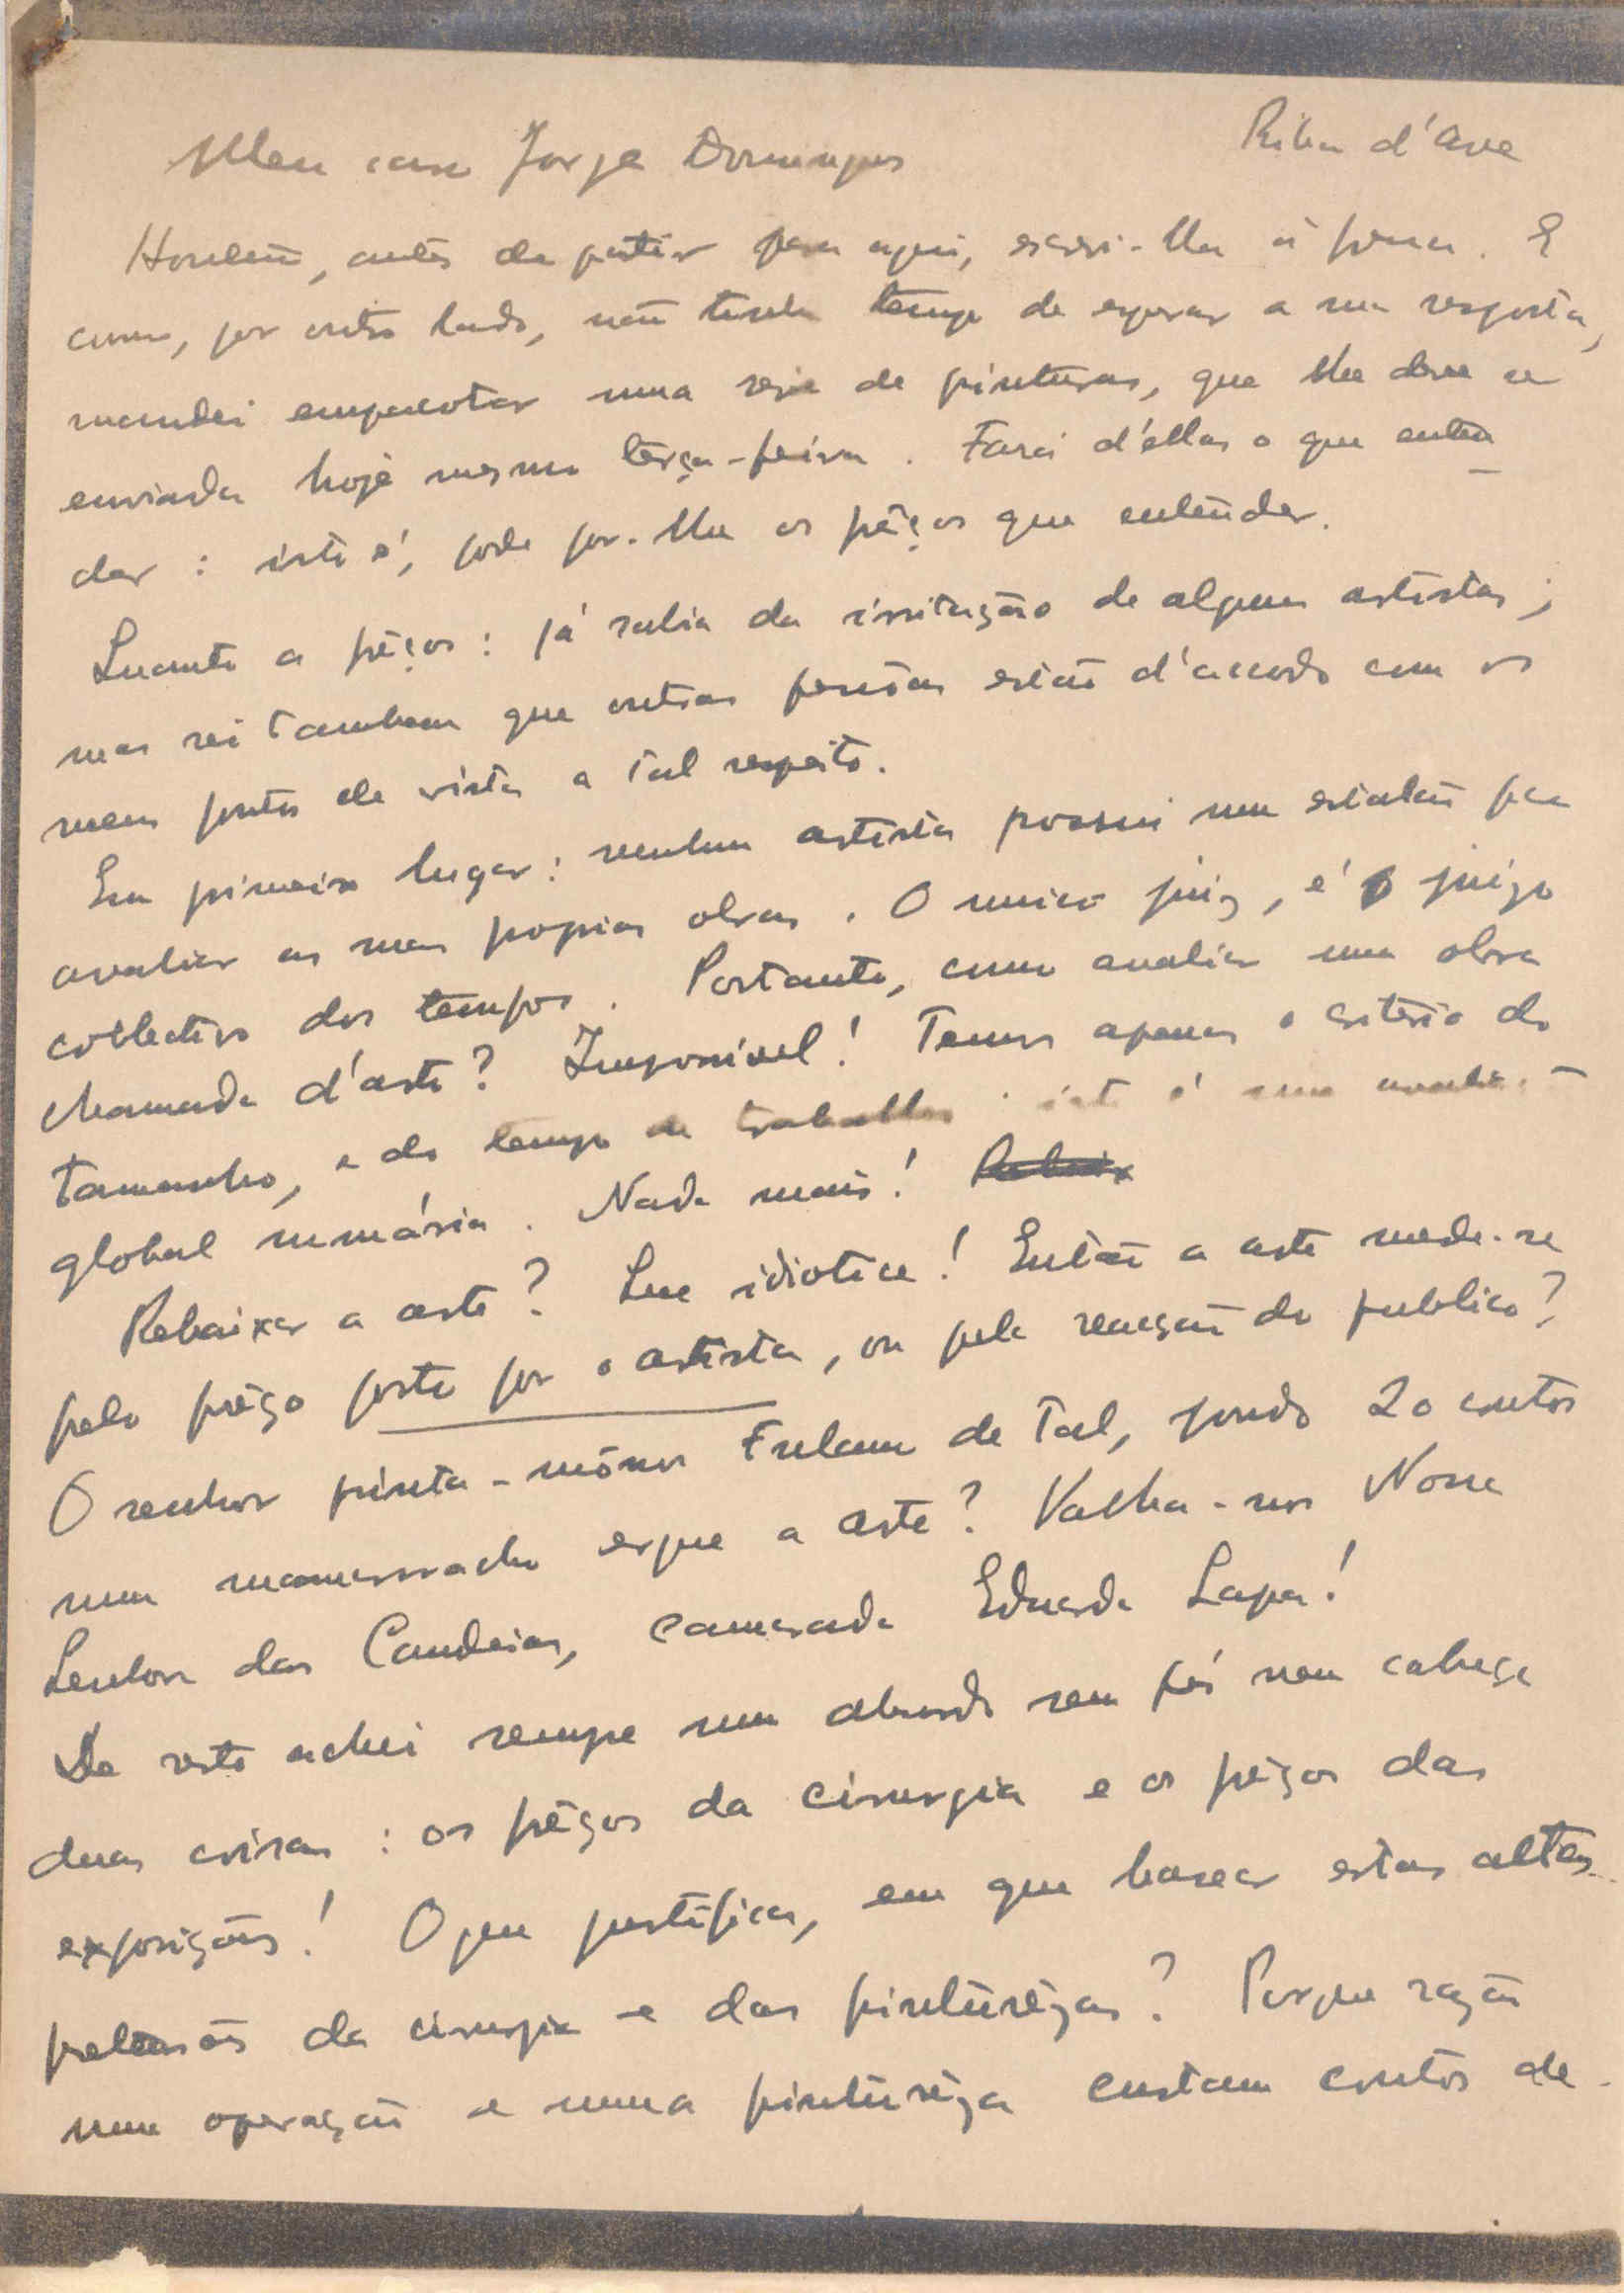 Riba d'Ave
Meu caro Jorge Domingues
Hontem, antes de partir para aqui, escrevi-lhe á pressa. E
como, por outro lado, não tinha tempo de esperar a sua resposta,
mandei empacotar uma serie de pinturas, que lhe deve ser
enviada hoje mesmo terça-feira. Fará d'ellas o que enten-
der: isto é, pode pôr-lhe os prêços que entender.
Quanto a prêços: já sabia da irritação de alguns artistas;
mas sei tambem que outras pessôas estão d'accordo com os
meus pontos de vista a tal respeito.
Em primeiro lugar: nenhum artista possui um estalão para
avaliar as suas proprias obras. O unico juiz, é o juizo
collectivo dos tempos. Portanto, como avaliar uma obra
chamada d'arte? Impossivel! Temos apenas o criterio do
tamanho, e do tempo de trabalho: isto é uma
global sumária. Nada mais!
Rebaixar a arte? Que idiotice! Então a arte mede-se
pelo prêço posto por o artista, ou pela reacção do publico?
O senhor pinta-mônos Fulano de Tal, pondo 20 contos
num mamarracho ergue a arte? Valha-nos Nossa
Senhora das Candeias, camarada Eduarda Lapa!
De resto achei sempre um absurdo sem pés nem cabeça
duas coisas: os prêços da cirurgia e os prêços das
exposições! O que justifica, em que basear estas altas
pretensões da cirurgia e das pinturêzas? Porque razão
uma operação e uma pinturêza custam contos de